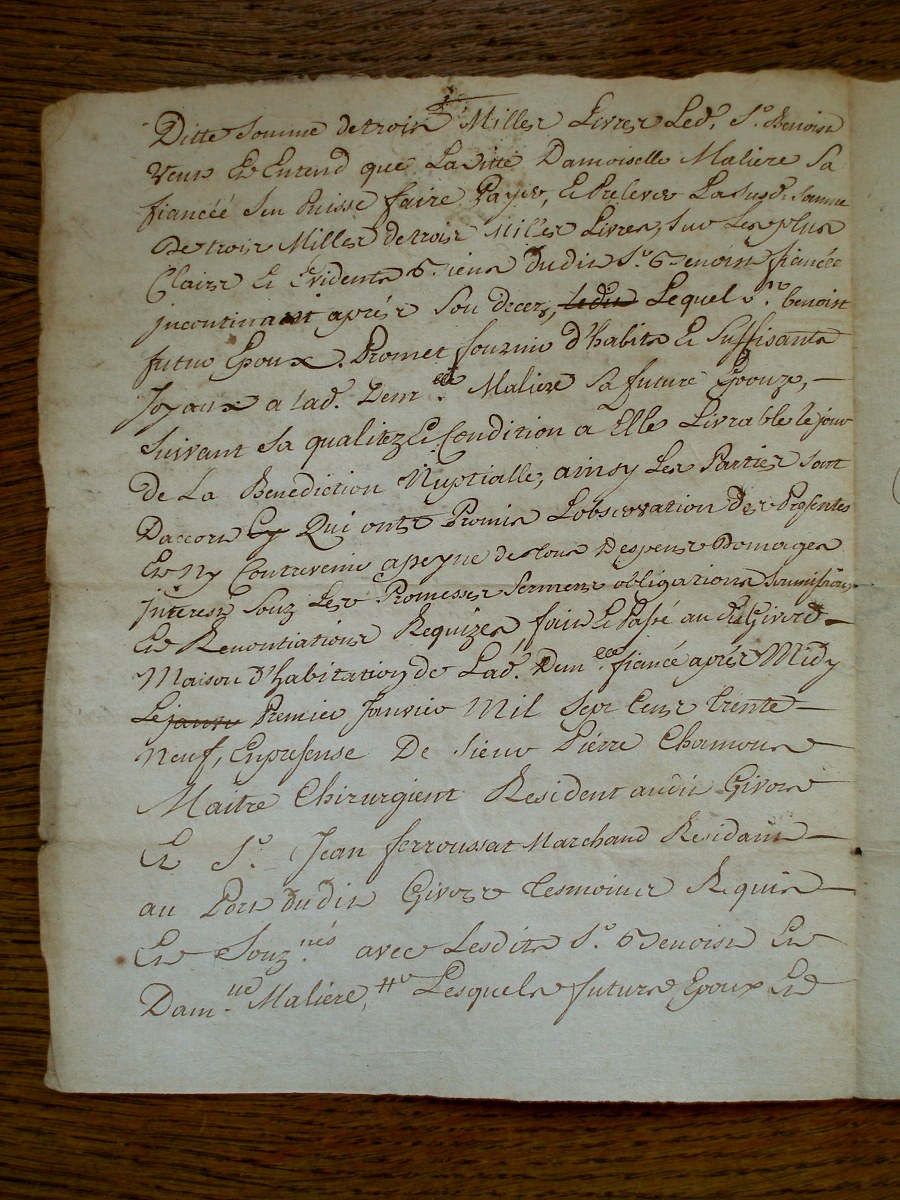 Ditte Somme de trois Milles Livres Led. Sr. Benoist
veut Et Entend que Laditte Damoiselle Maliere Sa
fiancéé S'en Puisse faire Payer, Et Prelever La Sud. somme
De trois Milles de trois Milles Livres, sur Les plus
Claires Et Evidents Biens dudit Sr. Benoist fiancée
incontinant aprés Son decez, ledit Lequel Sr. benoist
futur Epoux. Promet fournir d'habits Et Suffisants
Joyaux a lad. Dem.elle Maliere Sa future Epouze,
Suivant Sa qualitez Et Condition a Elle Livrable le jour
de La Benediction Nuptialle, ainsy Les Parties sont
Daccort Ey Qui onts Promis Lobservation des Presentes
Et Ny Contrevenir apeyne de tous Despens Domages
interest Souz Les Promesses Serments obligations Soumissions
Et Renontiations Requizes, fait Et Passé au dit Givord
Maison d'habitation de Lad. Dem.elle fiancé aprés Midy
Le janvr Premier Janvier Mil Sept Cent Trente
Neuf, En presense De Sieur Piérre Chamous
Maitre Chirurgient Resident audit Givors
Et Sr. Jean ferroussat Marchand Residant
au Port dudit Givors tesmoins Requis
Et Souz.nés avec Lesdits Sr. Benoist Et
Dam.lle Maliére, Lesquels futurs Epoux Et